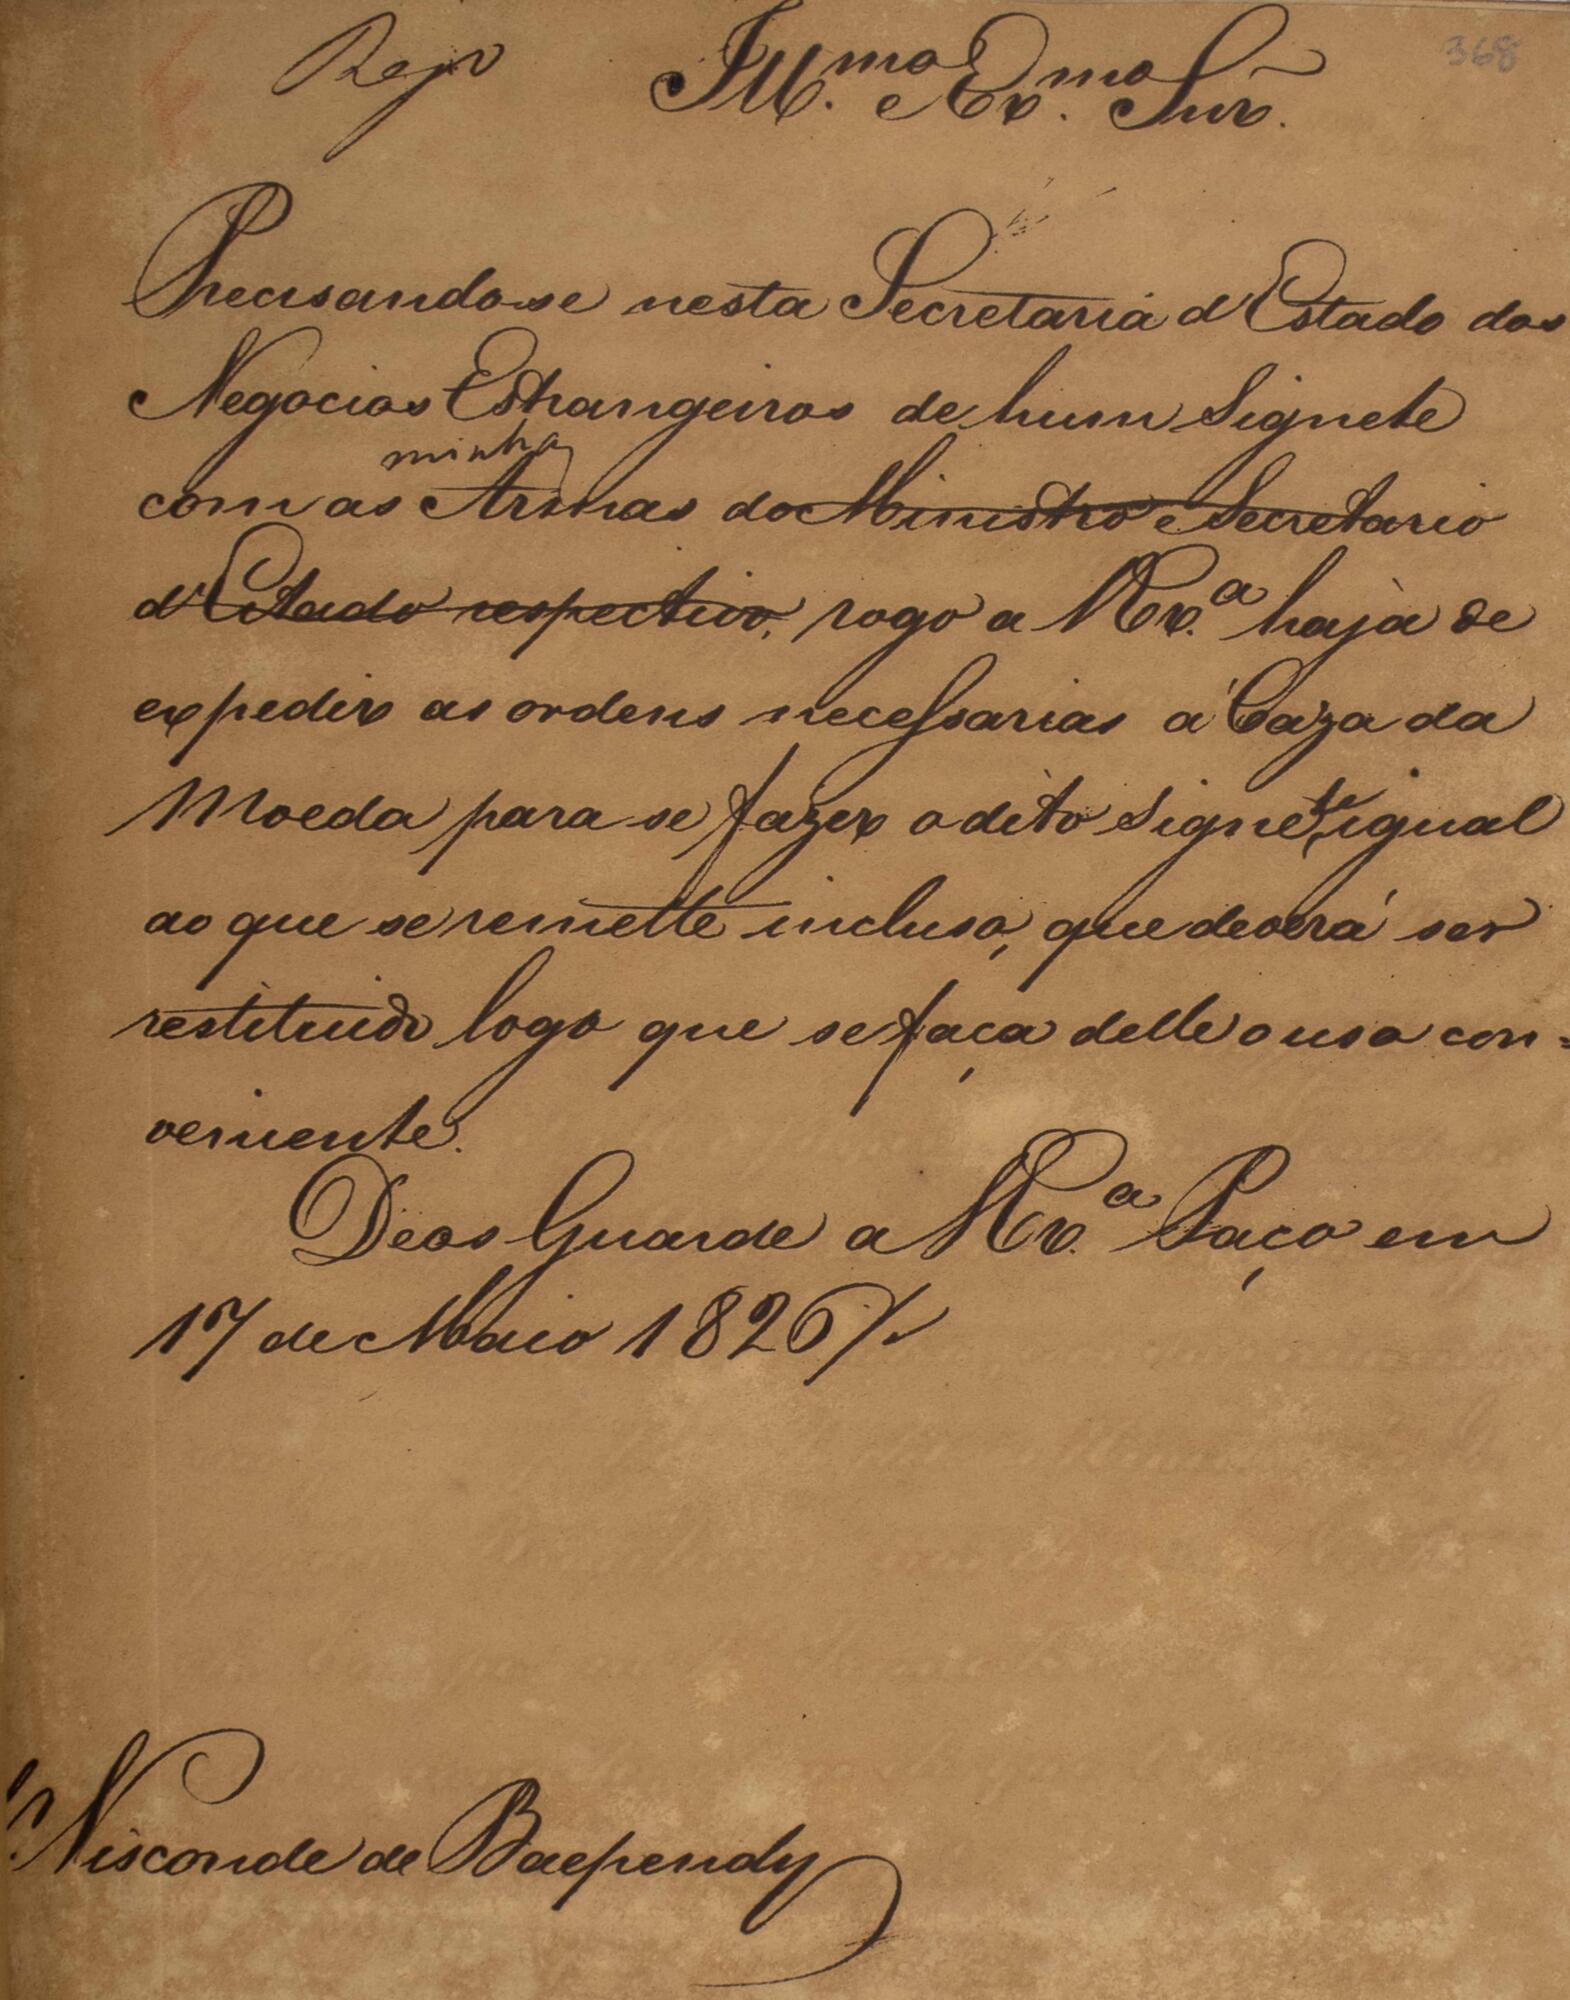 368
Reg.º
Ill.mo e Ex.mo Snr.
Precisando-se nesta Secretaria d'Estado dos
Negocios Estrangeiros de hum Signete
minhas
com as Armas do Ministro e Secretario
d'Estado respectivo, rogo a V Ex.a haja de
expedir as ordens necessarias á Caza da
Moeda para se fazer o dito Signete, igual
ao que se remette incluso, que deverá ser
restituido logo que se faça delle o uso con=
veniente.
Deos Guarde a V Ex.a Paço em
17 de Maio 1826
Visconde de Baependy